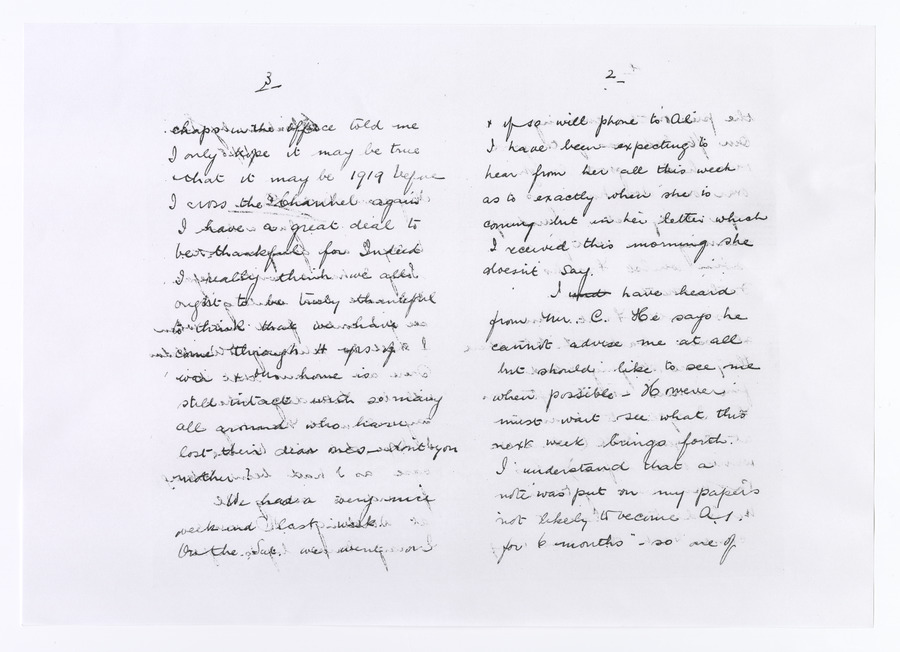 2
& if so will phone to Ali
I have been expecting to
hear from her all this week
as to exactly when she is
coming but in her letter which
I rceived this morning she
doesn't say.
I have heard
from Mr. C. He says he
cannot advise me at all
but should like to see me
when possible – However
must wait see what this
next week brings forth.
I understand that a
note was put on my papers
not likely to become A.1.
for 6 months" – so one of
3
chaps in the office told me
I only hope it may be true
that it may be 1919 before
I cross the Channel again
I have a great deal to
be thankful for Indeed
I really think we all
ought to be truly thankful
to think that we have
come through it
home is
still intact with so many
all around who have
lost their dear ones – don't you
mother
We had a very nice
week end last week
On the Sat. we went